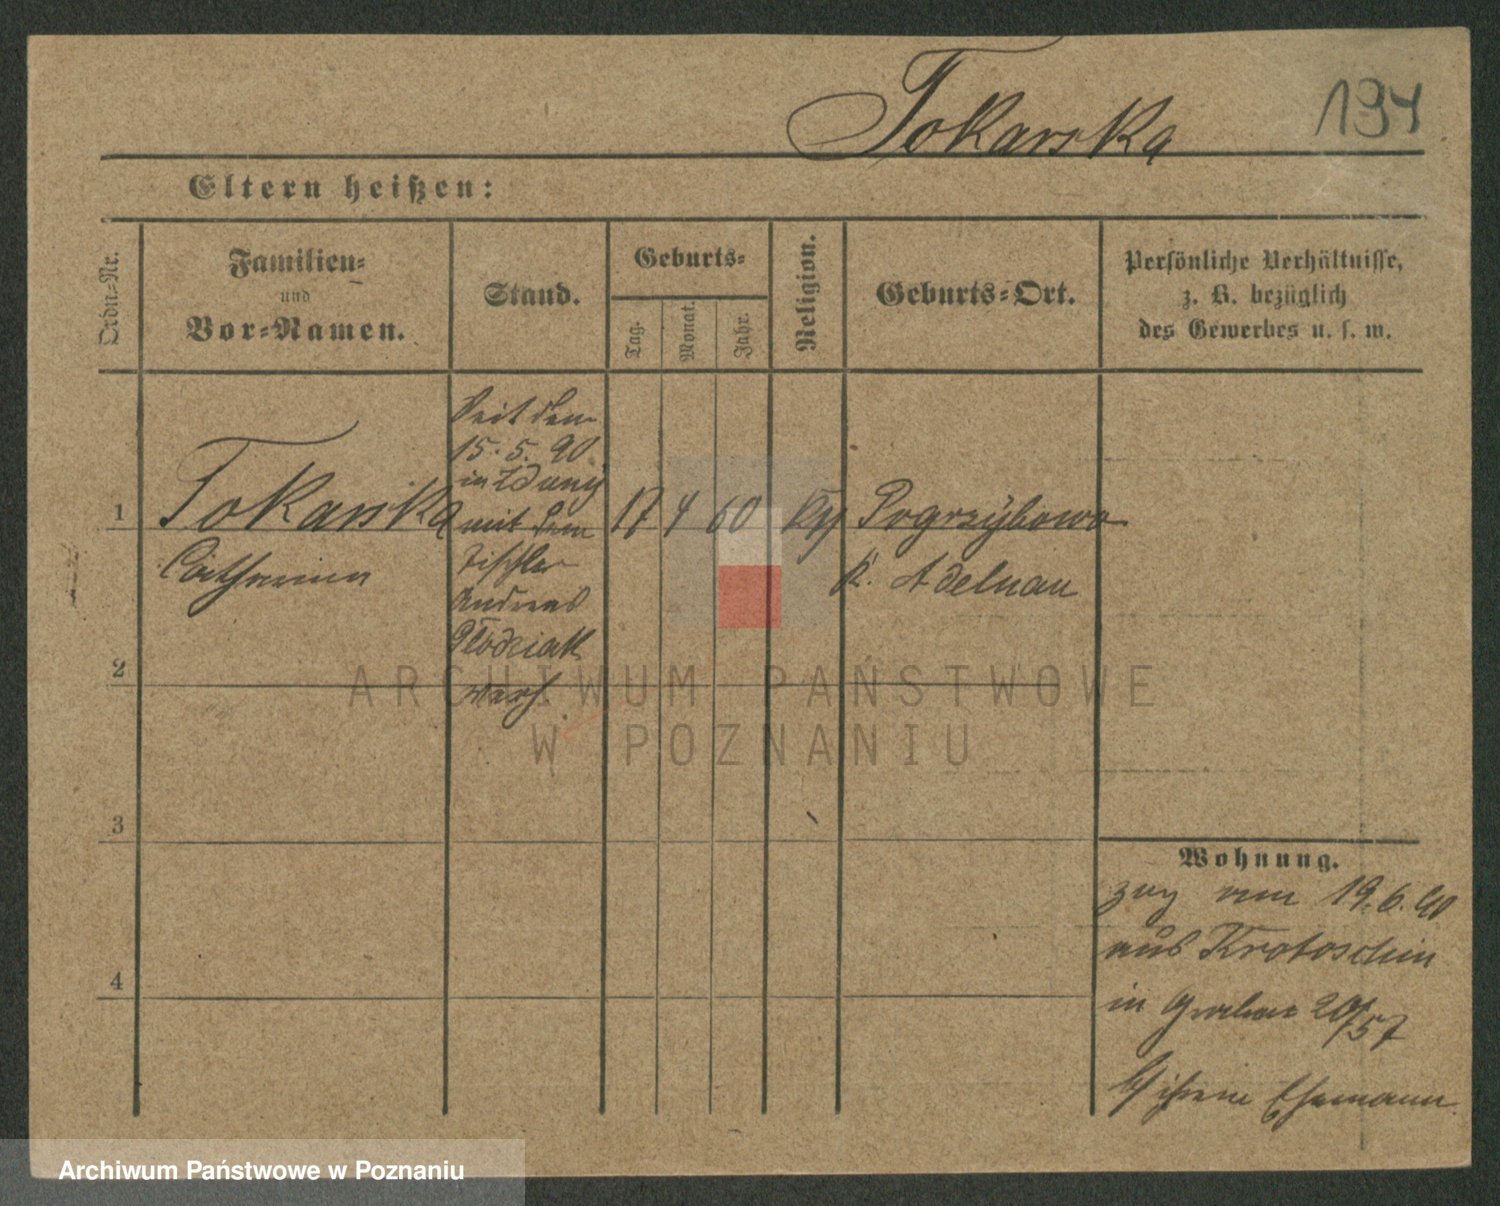 Tokarska
194
Eltern heißen:
Ordn=Nr.
Familien=
und
Vor=Namen.
Stand.
Geburts=
Tag.
Monat.
Jahr.
Religion.
Geburts=Ort.
Persönliche Verhältnisse,
z. B. bezüglich
des Gewerbes u. s. w.
Seit dem
15. 5. 90
in Zduny
mit dem
Tischler
Andreas
verh.
1
Tokarska
Catharina
17 4 60
Pogrzybowo
K. Adelnau
2
3
4
Wohnung.
zug vom 19.6.90
aus Krotoschin
in Graben 20/57
Ehemann
ARCHIWUM PAŃSTWOWE
W POZNANIU
Archiwum Państwowe w Poznaniu